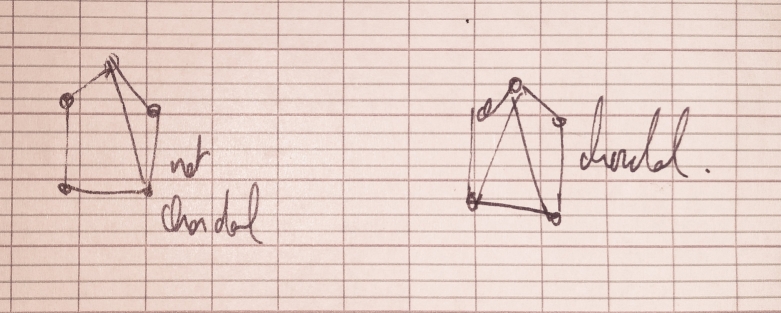 not
chordal
chordal.